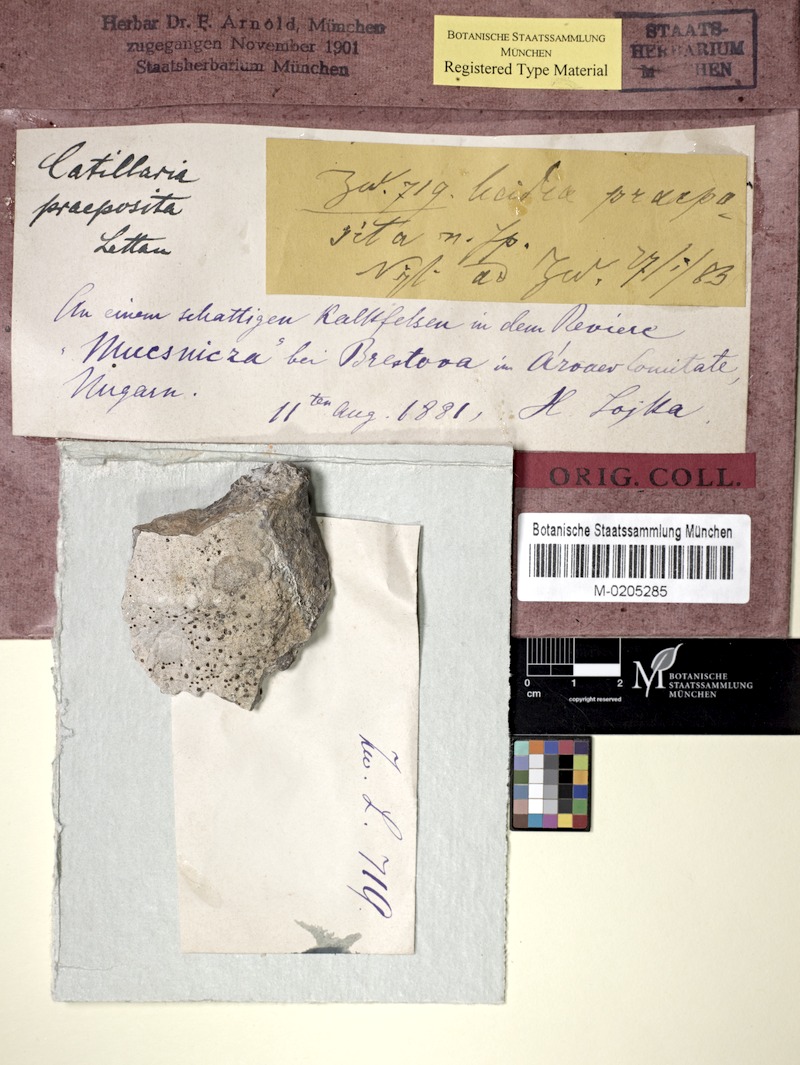 Herbar Dr. F. Arnold, München
zugegangen November 1901
Staatsherbarium München
BOTANISCHE STAATSSAMMLUNG
MÜNCHEN
Registered Type Material
STAATS-
HERBARIUM
MÜNCHEN
Catillaria
praeposita
Lettau
Zw. 719. Lecidea praepo-
sita n. sp.
Nyl. ad Zw. 27/1/83
An einem schattigen Kalkfelsen in dem Reviere
"Mucsnicza" bei Brestova im Árvaer Comitate,
Ungarn.
11ten Aug. 1881, H. Lojka.
ORIG. COLL.
Botanische Staatssammlung München
M-0205285
0 1 2
cm
copyright reserved
M BOTANISCHE
STAATSSAMMLUNG
MÜNCHEN
Zw. L. 719.